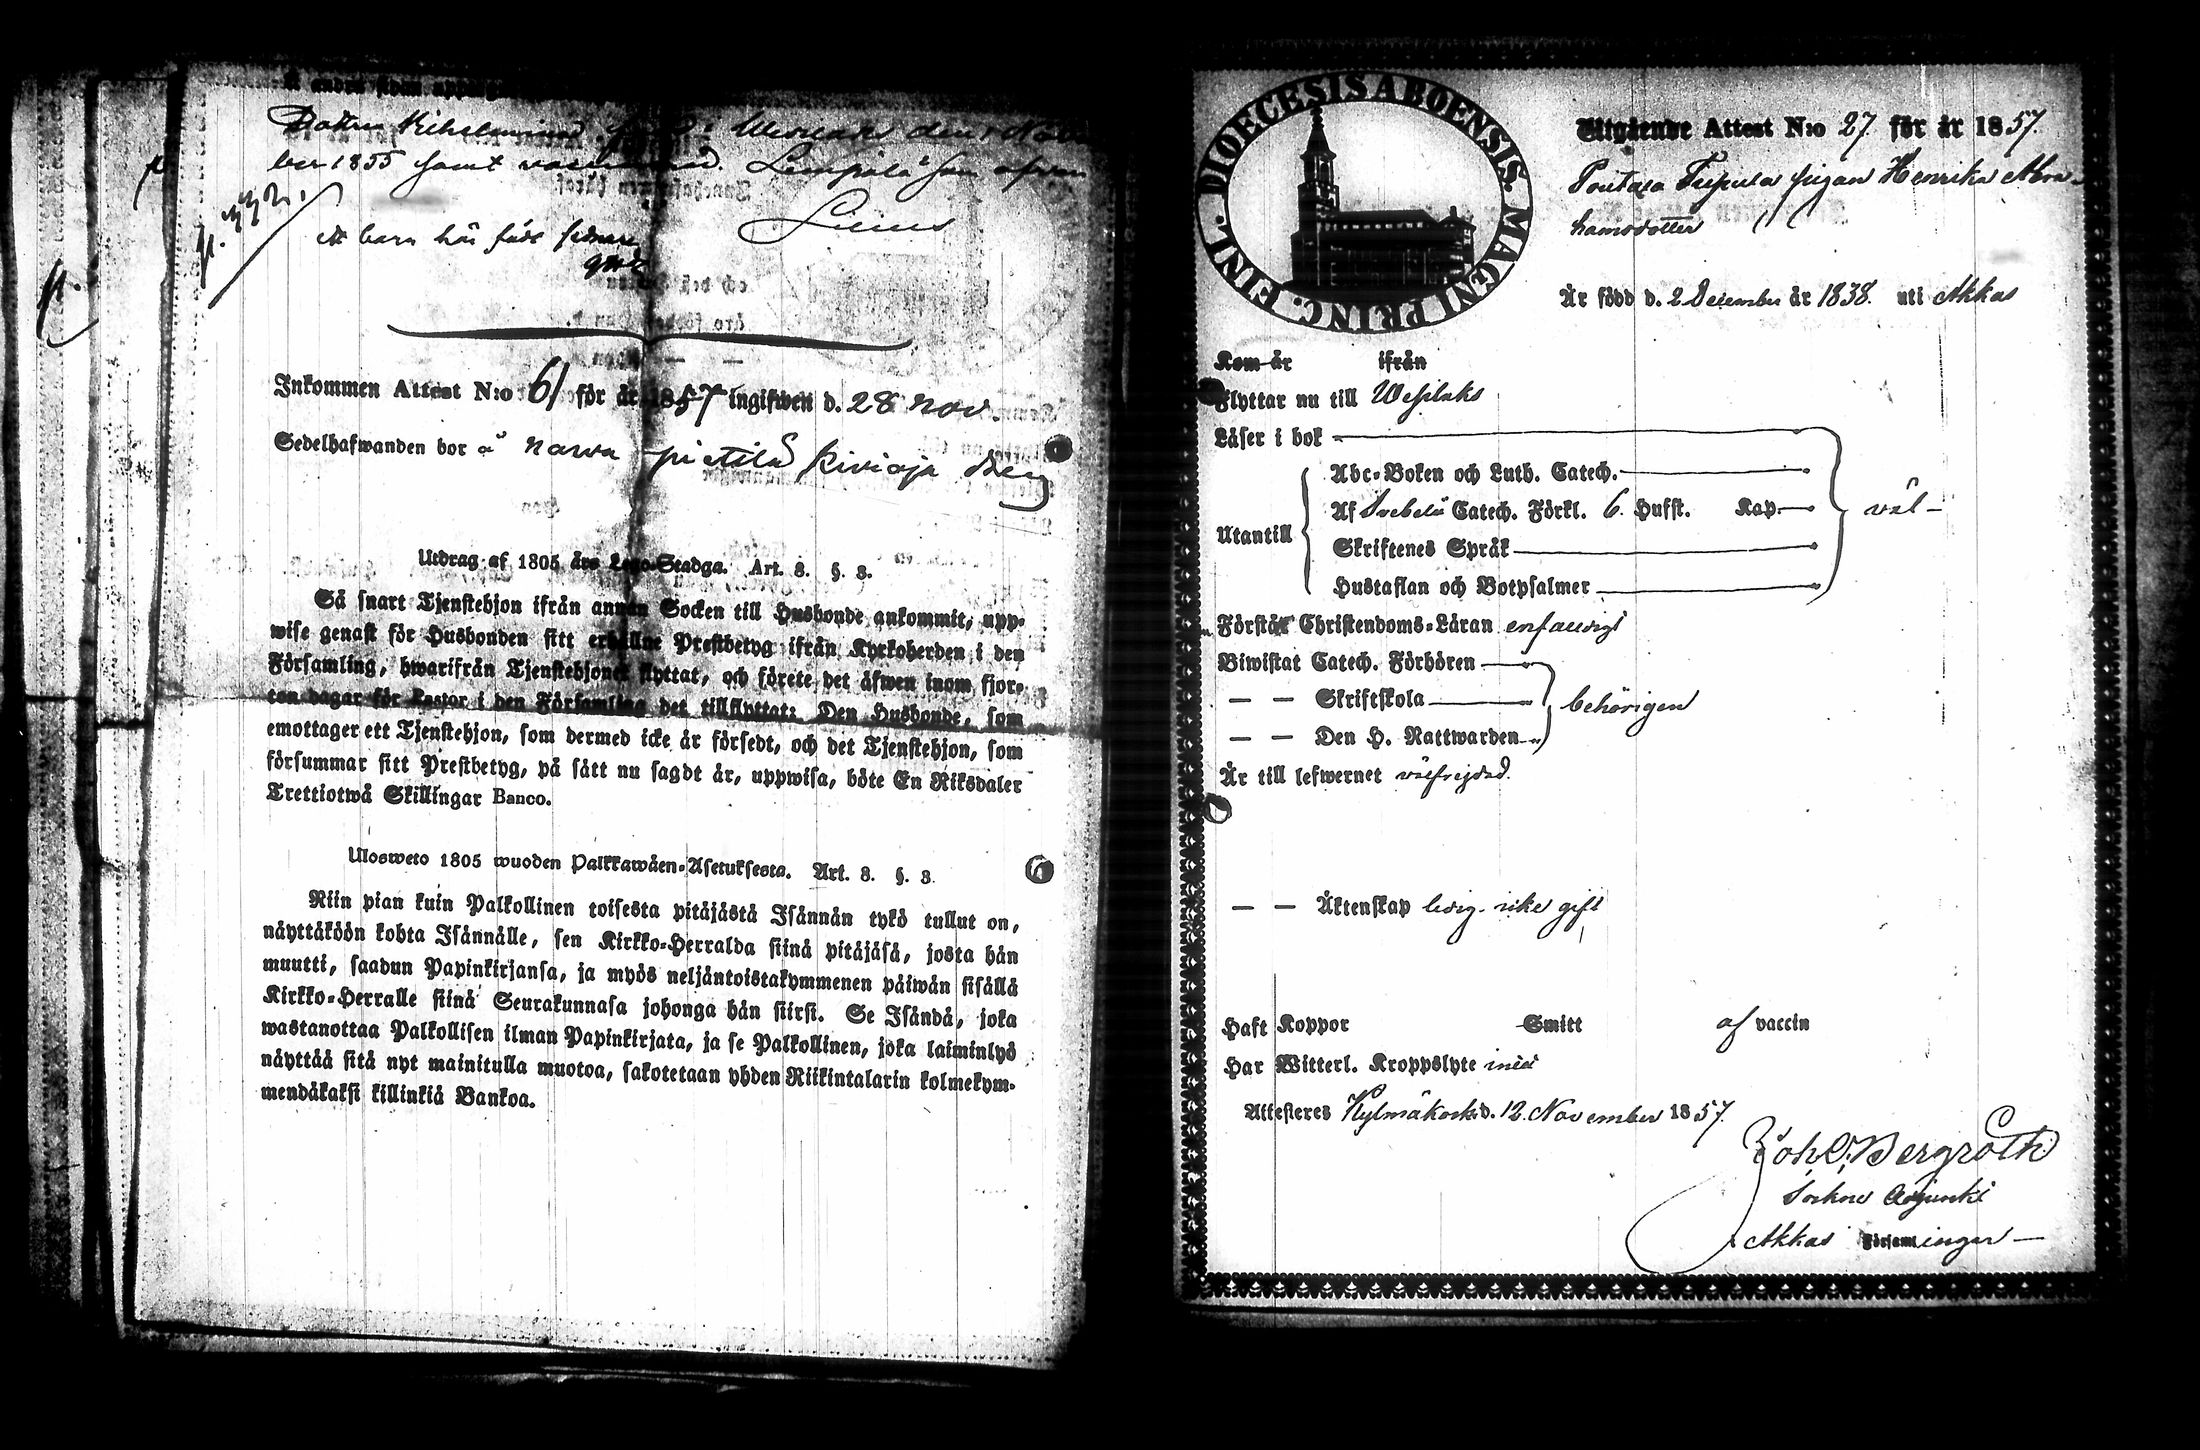 Å andra sidan
Dottren född i den 1 Novem
ber 1855 samt vaccinerad. Lempälä som ofvan
Lilius
ett barn här född sednare
Inkommen Attest N:o 61 för år 1857 ingifwen d. 28 nov.
Sedelhafwanden bor å narva pietilä kivioja
Utdrag af 1805 års Lego-Stadga. Art. 8. §. 3.
Så snart Tjenstehjon ifrån annan Socken till Husbonde ankommit, upp-
wise genast för Husbonden sitt erhållne Prestbetyg ifrån Kyrkoherden i den
Församling, hwarifrån Tjenstehjonet flyttat, och förete det äfwen inom fjor-
ton dagar för Pastor i den Församling det tillflyttat: Den Husbonde, som
emottager ett Tjenstehjon, som dermed icke är försedt, och det Tjenstehjon, som
försummar sitt Prestbetyg, på sätt nu sagdt är, uppwisa, böte En Riksdaler
Trettiotwå Skillingar Banco.
Ulosweto 1805 wuoden Palkkawäen-Asetuksesta. Art. 8. §. 3.
Niin pian kuin Palkollinen toisesta pitäjästä Isännän tykö tullut on,
näyttäköön kohta Isännälle, sen Kirkko-Herralda siinä pitäjäsä, josta hän
muutti, saadun Papinkirjansa, ja myös neljäntoistakymmenen päiwän sisällä
Kirkko-Herralle siinä Seurakunnasa johonga hän siirsi. Se Isändä, joka
wastanottaa Palkollisen ilman Papinkirjata, ja se Palkollinen, joka laiminlyö
näyttää sitä nyt mainitulla muotoa, sakotetaan yhden Riikintalarin kolmekym-
mendäkaksi killinkiä Bankoa.
FINL. DIOECESIS ABOENSIS. MAGNI PRINC.
Utgående Attest N:o 27. för år 1857.
Toutala Tupula pigan Henrika Abra-
hamsdotter
Är född d. 2 December år 1838. uti Akkas
Kom år ifrån
Flyttar nu till Wesilaks
Läser i bok
Abc-Boken och Luth. Catech.
Af Svebelii Catech. Förkl. 6. Hufst. Kap. väl
Utantill
Skriftenes Språk
Hustaflan och Botpsalmer
Förstår Christendoms-Läran enfaldigt
Biwistat Catech. Förhören
— — Skriftskola behörigen
— — Den H. Nattwarden
Är till lefwernet välfrejdad.
— — Äktenskap ledig. icke gift
Haft Koppor Smitt af vaccin
Har Witterl. Kroppslyte intet
Attesteras Kylmäkoski d. 12. November 1857.
Joh. O. Bergroth
Sockne Adjunkt
Akkas Församlingar